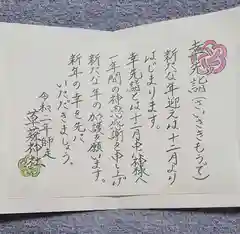 幸先詣(さいさきもうで)
新たな年迎えは十二月より
はじまります。
幸先詣とは十二月中に神様へ
一年間の神恩感謝を申し上げ
新たな年の加護を願います。
新年の幸を先に
いただきましょう。
令和二年師走
神社